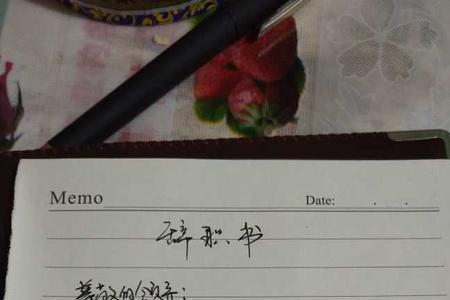 Memo Date: . .
辞职书
尊敬的领导：